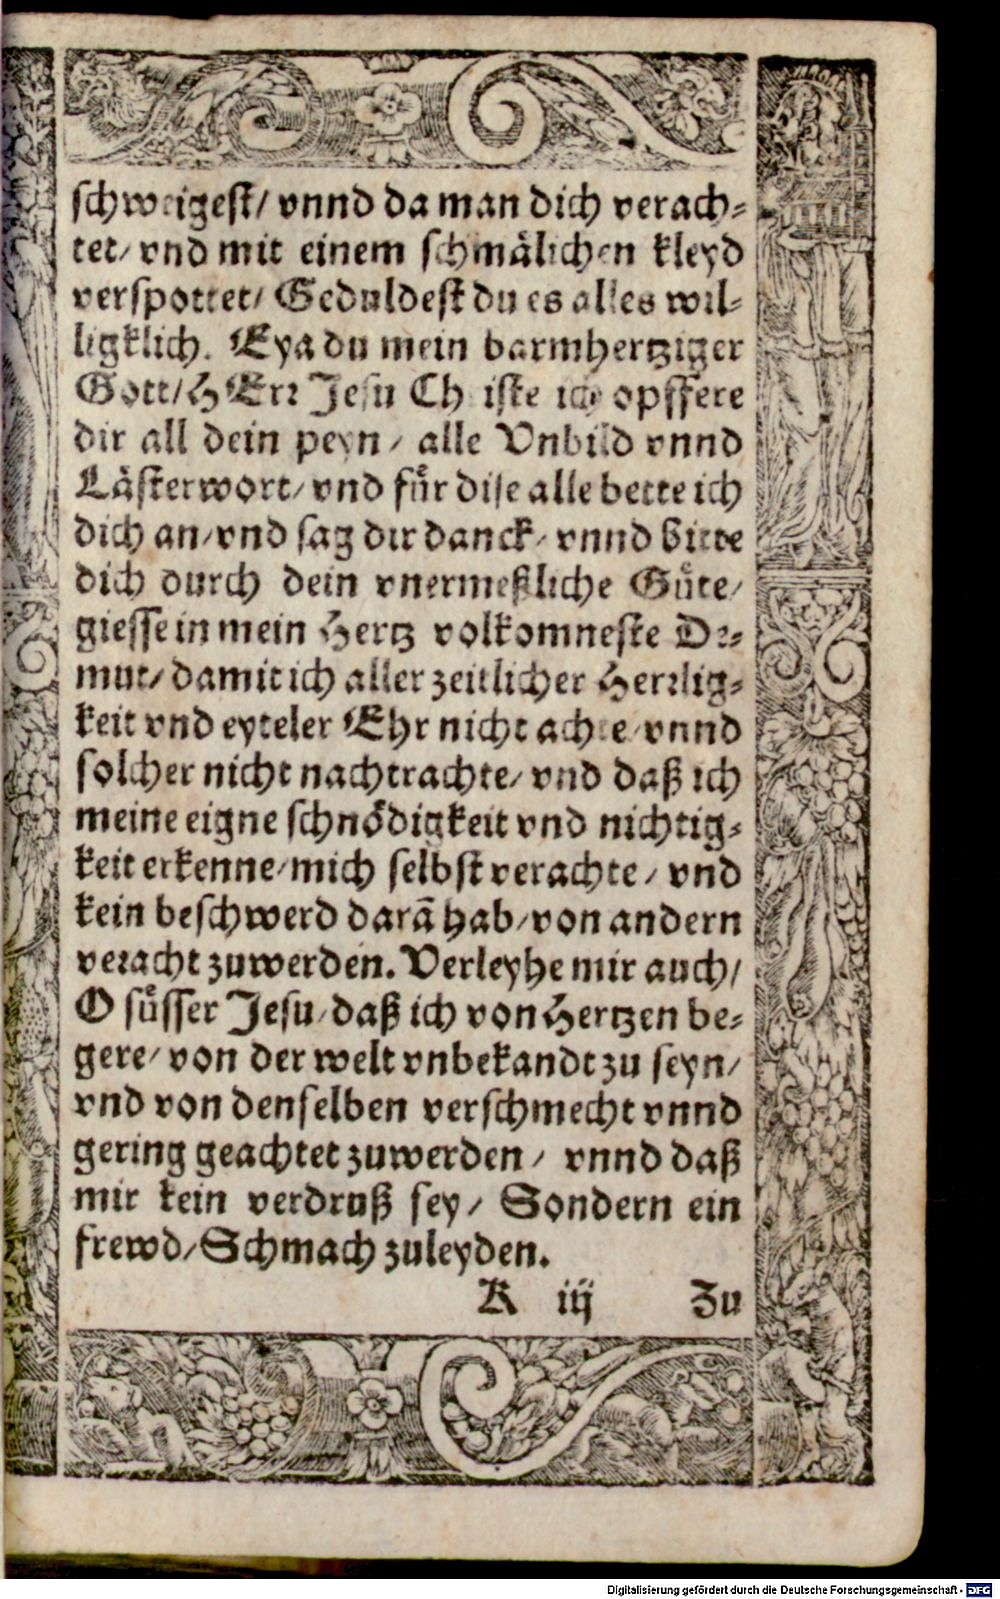 schweigest/ vnnd da man dich verach⸗
tet/ vnd mit einem schmälichen kleyd
verspottet/ Geduldest du es alles wil⸗
ligklich. Eya du mein barmhertziger
Gott/ HErr Jesu Christe ich opffere
dir all dein peyn/ alle Vnbild vnnd
Lästerwort/ vnd fuͤr dise alle bette ich
dich an/ vnd sag dir danck/ vnnd bitte
dich durch dein vnermeßliche Guͤte/
giesse in mein Hertz volkomneste De⸗
mut/ damit ich aller zeitlicher Herrlig⸗
keit vnd eyteler Ehr nicht achte/ vnnd
solcher nicht nachtrachte/ vnd daß ich
meine eigne schnoͤdigkeit vnd nichtig⸗
keit erkenne/ mich selbst verachte/ vnd
kein beschwerd darã hab/ von andern
veracht zuwerden. Verleyhe mir auch/
O suͤsser Jesu/ daß ich von Hertzen be⸗
gere/ von der welt vnbekandt zu seyn/
vnd von denselben verschmecht vnnd
gering geachtet zuwerden/ vnnd daß
mir kein verdruß sey/ Sondern ein
frewd/ Schmach zuleyden.
K iij Zu
Digitalisierung gefördert durch die Deutsche Forschungsgemeinschaft - DFG